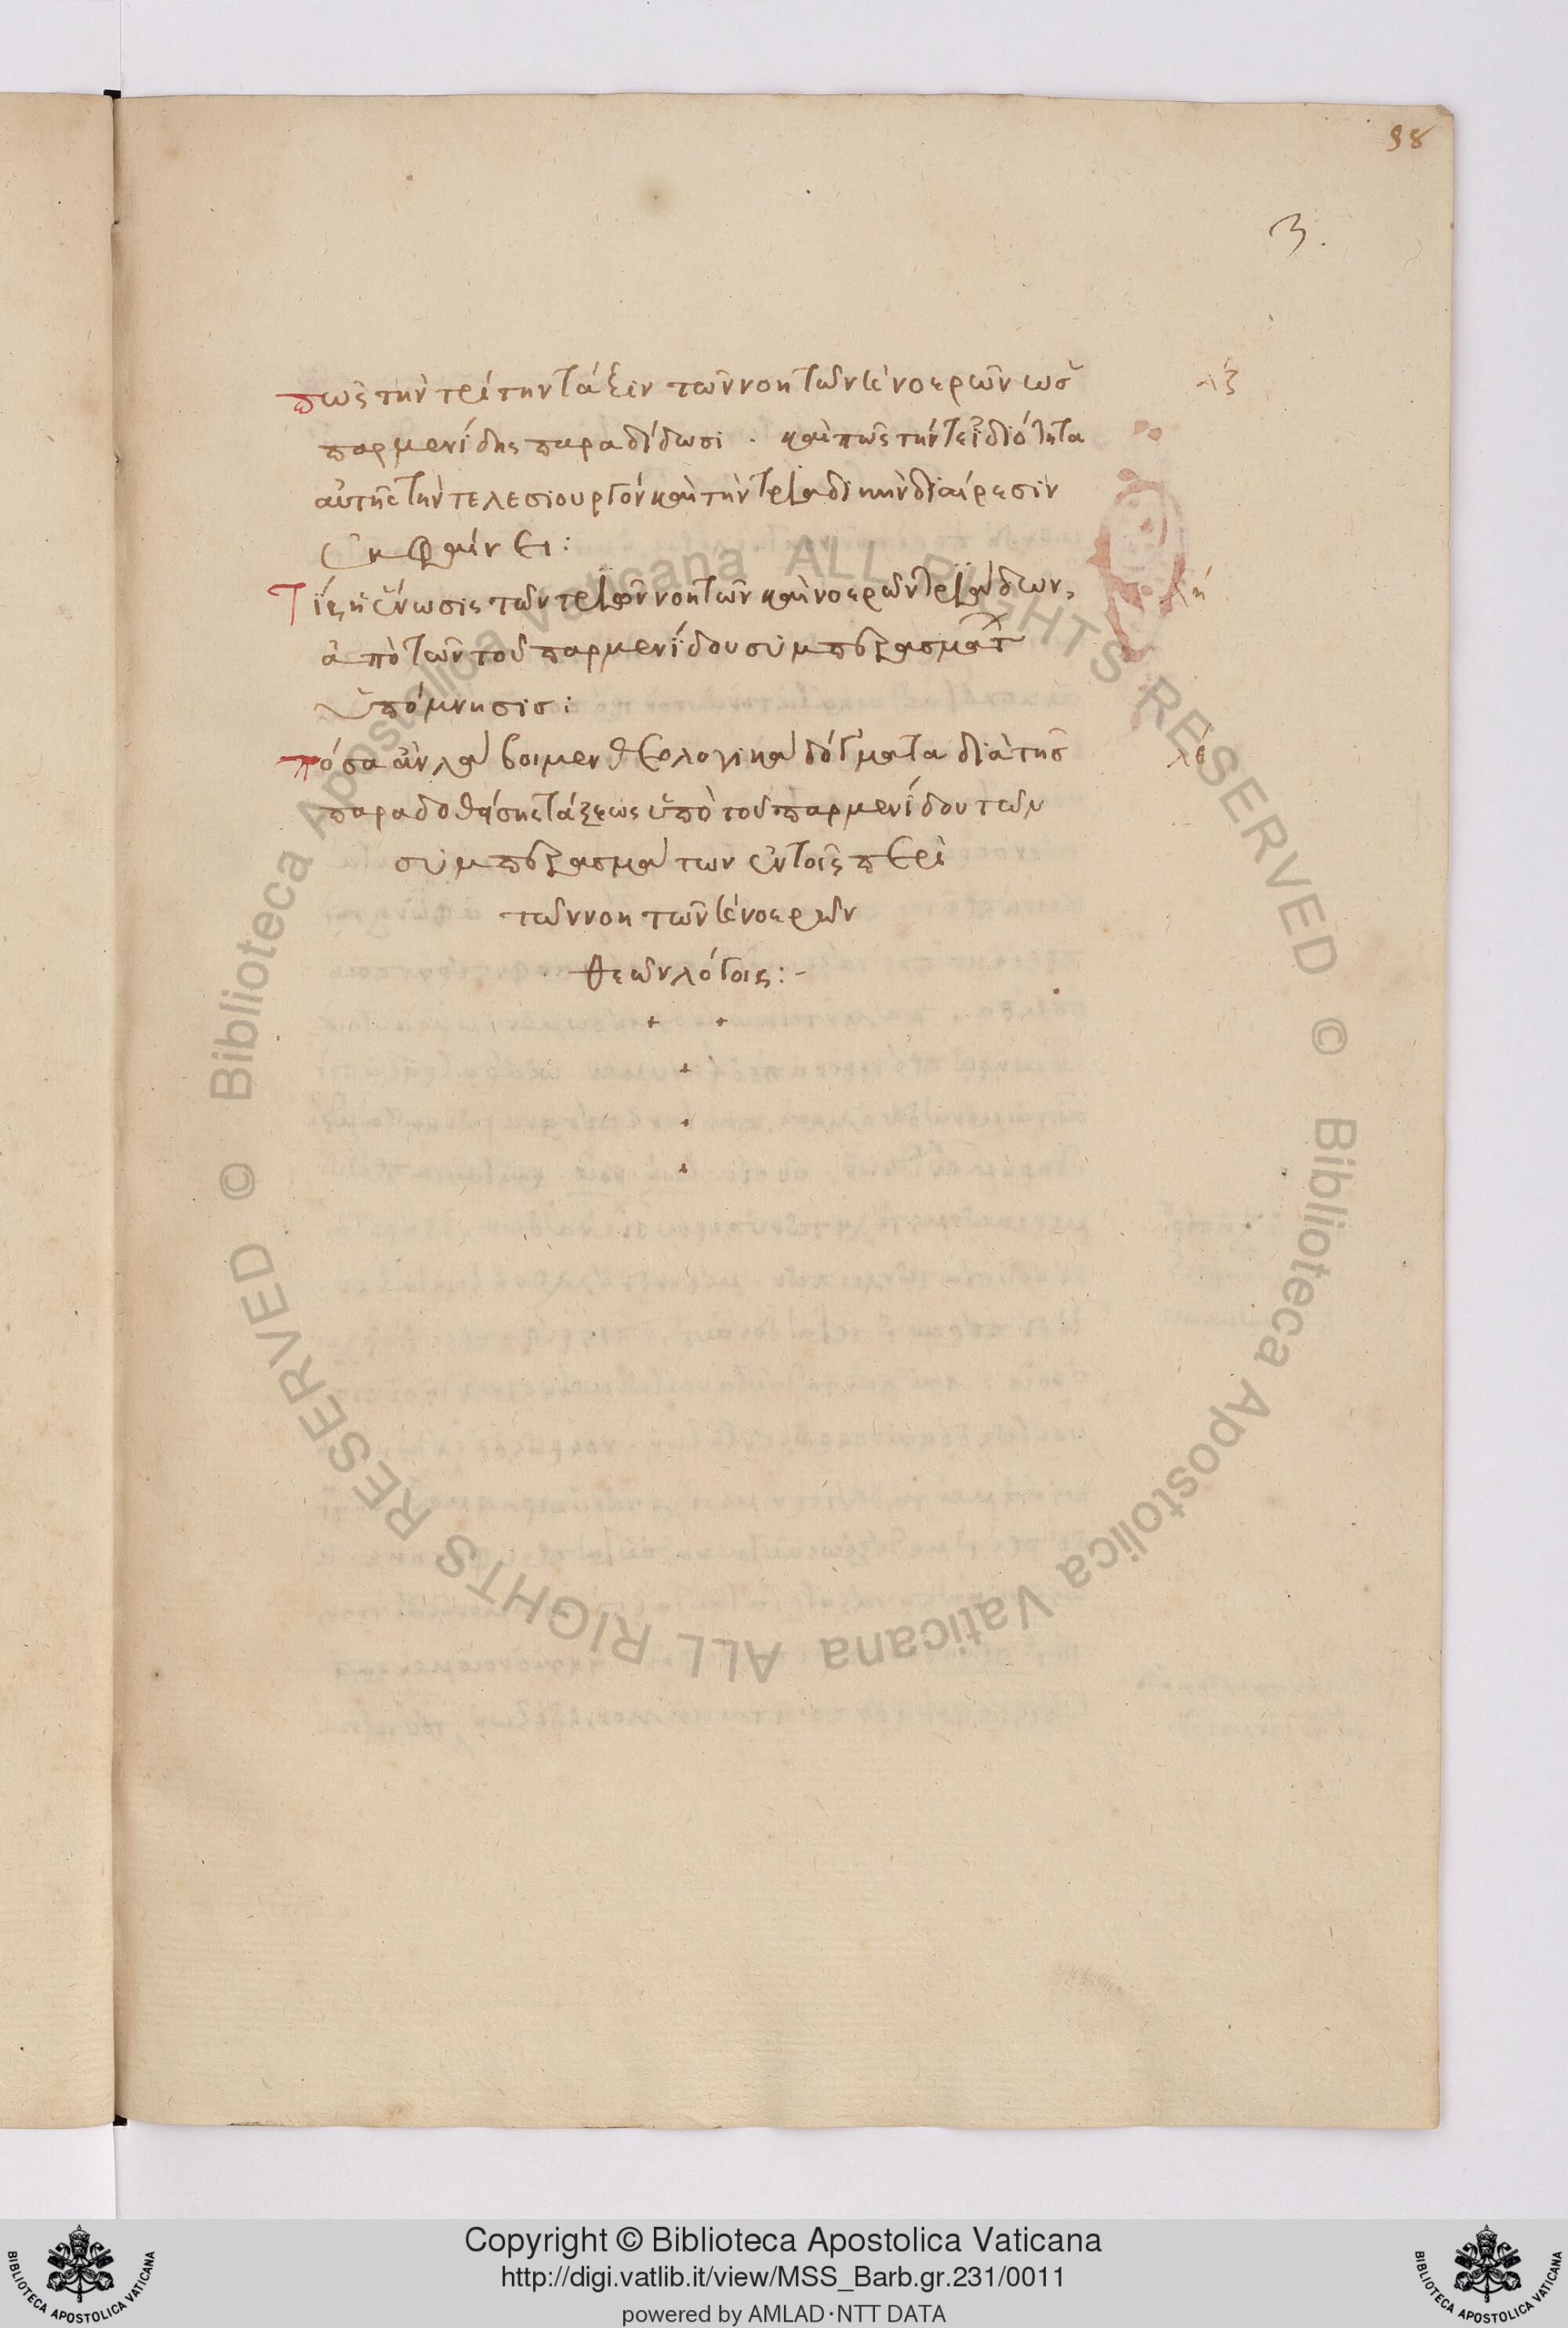 98
3.
πῶς τὴν τρίτην τάξιν τῶν νοητῶν κ νοερῶν ὡς
λζ
παρμενίδης παραδίδωσι . καὶ πῶς τήν τε ἰδιότητα
αὐτῆς τὴν τελεσιουργὸν καὶ τὴν τριαδικὴν διαίρεσιν
ἐκφαίνει :
Τίς ἡ ἕνωσις τῶν τριῶν νοητῶν καὶ νοερῶν τριάδων,
λη
ἀπὸ τῶν τοῦ παρμενίδου συμπερασμάτ
ὑπόμνησις :
πόσα ἂν λάβοιμεν θεολογικὰ δόγματα διὰ τῆς
λθ
παραδοθείσης τάξεως ὑπὸ τοῦ παρμενίδου τῶν
συμπερασμάτων ἐν τοῖς περὶ
τῶν νοητῶν κ νοερῶν
θεῶν λόγοις :-
Biblioteca Apostolica Vaticana ALL RIGHTS RESERVED ©
Biblioteca Apostolica Vaticana ALL RIGHTS RESERVED ©
Copyright © Biblioteca Apostolica Vaticana
http://digi.vatlib.it/view/MSS_Barb.gr.231/0011
powered by AMLAD·NTT DATA
BIBLIOTECA APOSTOLICA VATICANA
BIBLIOTECA APOSTOLICA VATICANA